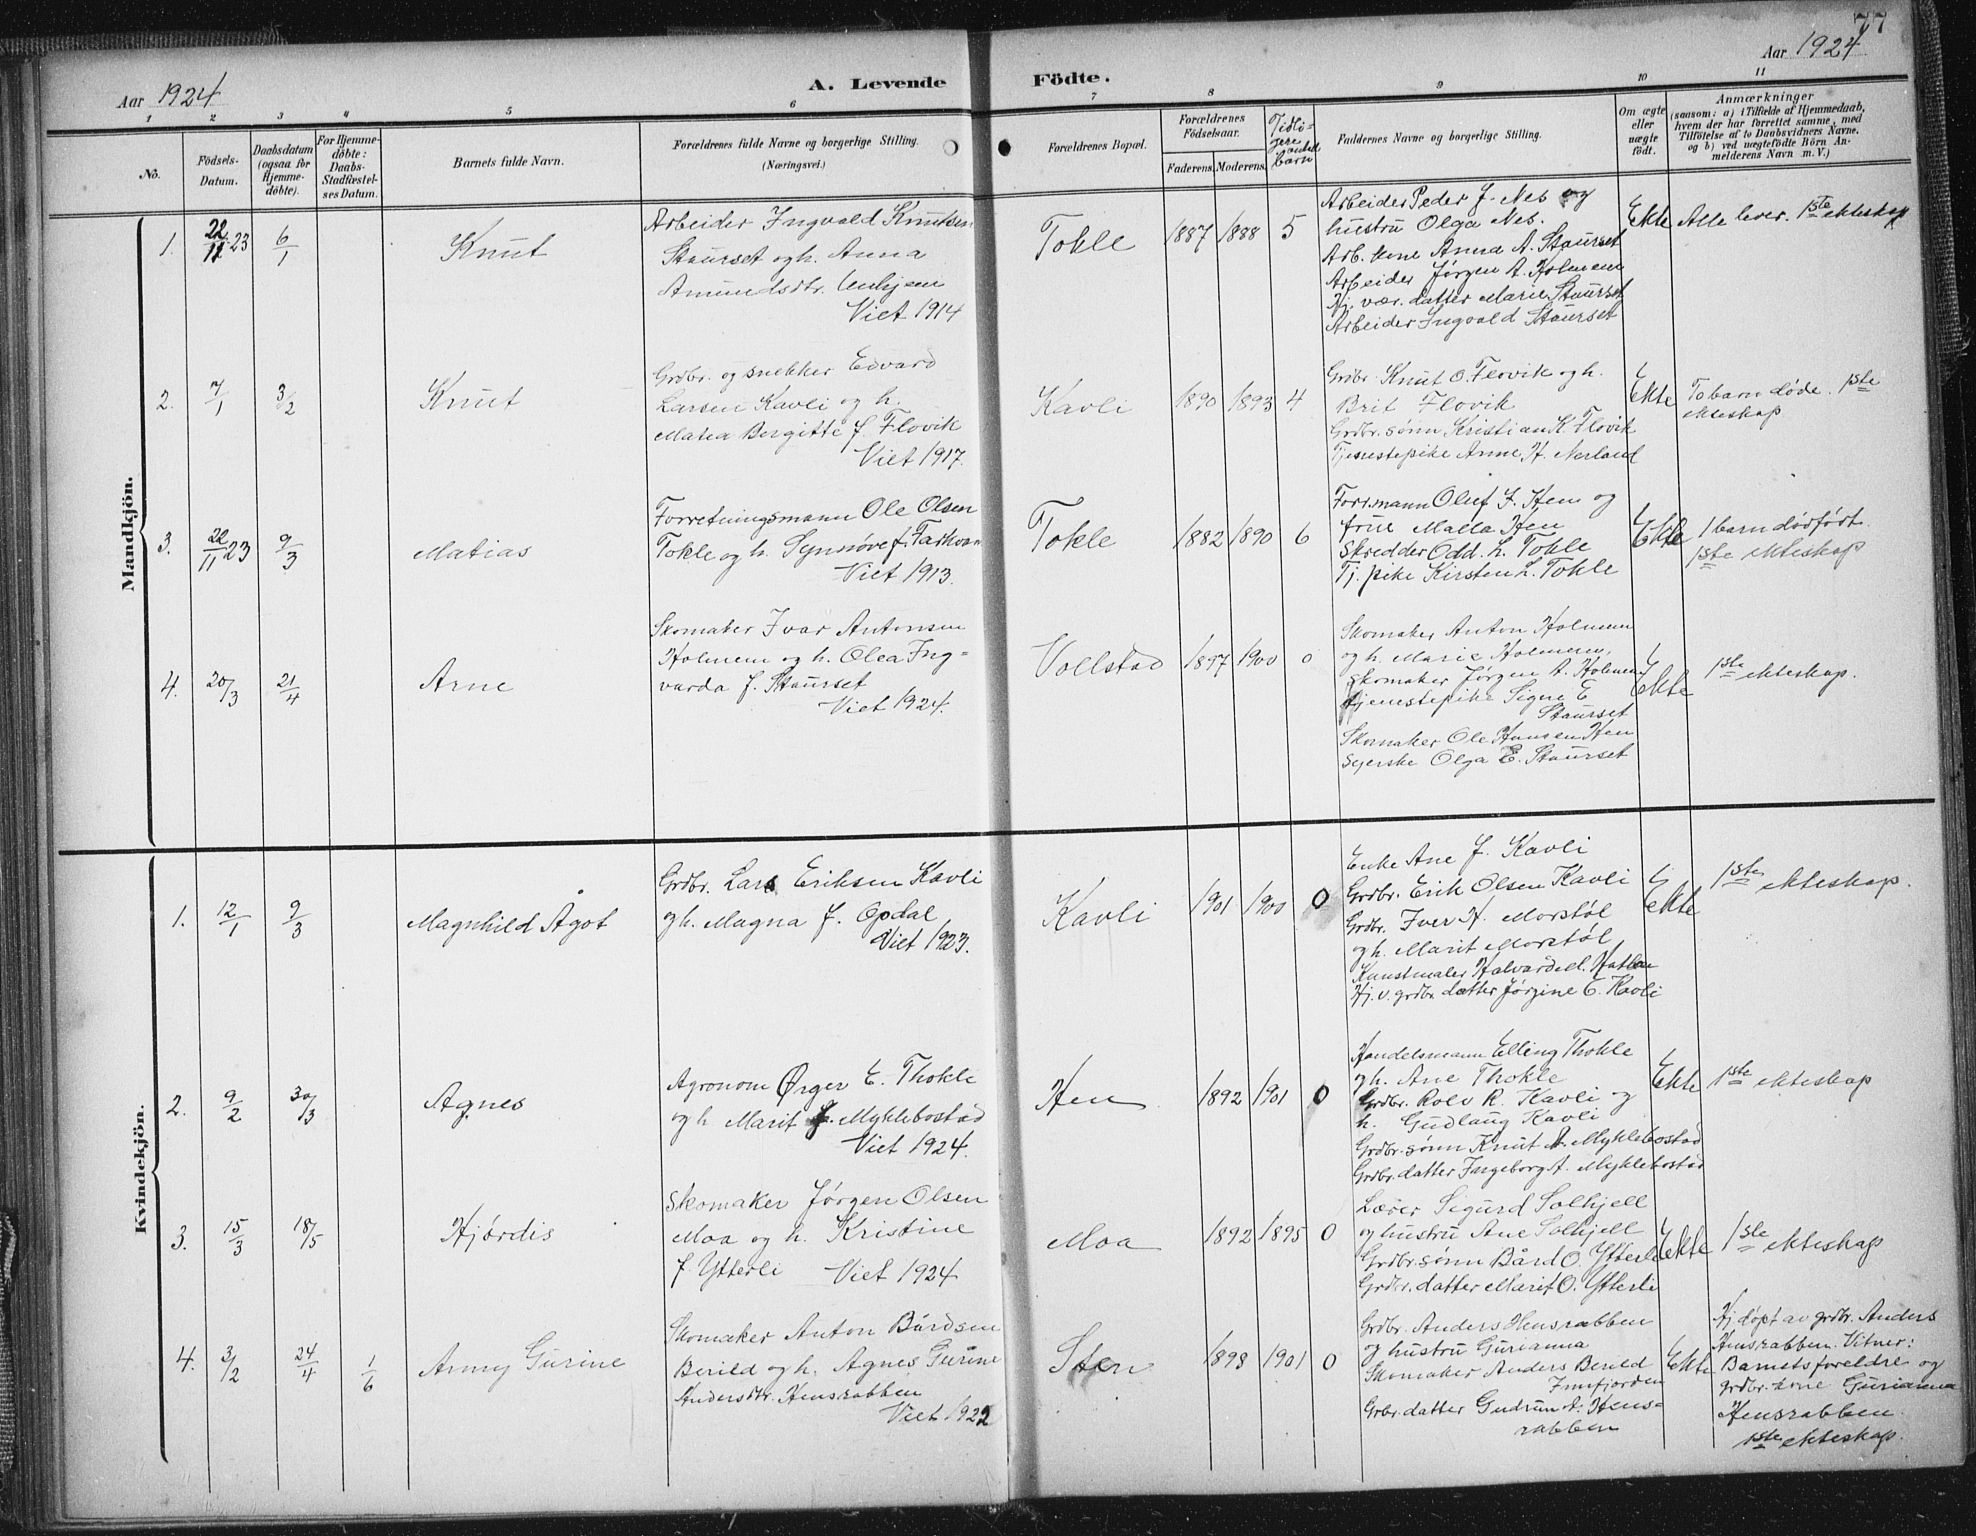 77
Aar 1924
A. Levende Födte.
Aar 1924
1 2 3 4 5 6 7 8 9 10 11
No.
Födsels-Datum.
Daabsdatum (ogsaa for Hjemme-döbte).
For Hjemme-döbte: Daabs-Stadfæstel-ses Datum.
Barnets fulde Navn.
Forældrenes fulde Navne og borgerlige Stilling.
(Næringsvei.)
Forældrenes Bopæl.
Forældrenes Födselsaar.
Faderens. Moderens.
Tidli-gere antal barn
Faddernes Navne og borgerlige Stilling.
Om ægte eller uægte födt.
Anmærkninger
(saasom: a) i Tilfælde af Hjemmedaab,
hvem der har forrettet samme, med
Tilföielse af to Daabsvidners Navne,
og b) ved uægtefödte Börn An-
melderens Navn m. V.)
Mandkjön.
1. 22/11 23 6/1 Knut
Arbeider Ingvald Knutsen
Staurset og h. Anna
Amundsdtr. Unhjem
Viet 1914
Tokle 1887 1888 5
Arbeider Peder J. Nes og
hustru Olga Nes.
Arb. kone Anna A. Staurset
Arbeider Jørgen A. Holmem
Hj. vær. datter Marie Staurset
Arbeider Ingvald Staurset
Ekte Alle lever. 1ste ekteskap
2. 7/1 3/2 Knut
Grdbr. og snekker Edvard
Larsen Kavli og h.
Marta Bergitte f. Flovik
Viet 1917.
Kavli 1890 1893 4
Grdbr. Knut O. Flovik og h.
Brit Flovik
Grdbr. sønn Kristian K. Flovik
Tjenestepike Anne H. Nerland
Ekte To barn døde. 1ste
ekteskap
3. 22/11 23 9/3 Matias
Forretningsmann Ole Olsen
Tokle og h. Synnøve f. Farkvam
Viet 1913.
Tokle 1882 1890 6
Forr.mann Oluf I. Hen og
frue Malla Hen
Skredder Odd. L. Tokle
Tj. pike Kirsten L. Tokle
Ekte 1 barn dødfødt.
1ste ekteskap
4. 20/3 21/4 Arne
Skomaker Ivar Antonsen
Holmem og h. Olea Ing-
varda f. Staurset
Viet 1924.
Vollstad 1897 1900 0
Skomaker Anton Holmem
og h. Marie Holmem,
Skomaker Jørgen A. Holmem
tjenestepike Signe E
Staurset
Skomaker Ole Hansen Hen
Syerske Olga E. Staurset
Ekte 1ste ekteskap.
Kvindekjön.
1. 12/1 9/3 Magnhild Ågot
Grdbr. Lars Eriksen Kavli
og h. Magna f. Opdal
Viet 1923.
Kavli 1901 1900 0
Enke Ane J. Kavli
Grdbr. Erik Olsen Kavli
Grdbr. Iver H. Morstøl
og h. Marit Morstøl
Kunstmaler Halvard M. Hatlen
Hj. v. grdbr. datter Jørgine E. Kavli
Ekte 1ste ekteskap.
2. 9/2 30/3 Agnes
Agronom Ørger E. Thokle
og h Marit f. Myklebostad
Viet 1924.
Hen 1892 1901 0
Handelsmann Elling Thokle
og h. Ane Thokle
Grdbr. Rolv R. Kavli og
h. Gudlaug Kavli
Grdbr. sønn Knut A. Myklebostad
Grdbr. datter Ingeborg A. Myklebostad
Ekte 1ste ekteskap
3. 15/3 18/5 Hjørdis
Skomaker Jørgen Olsen
Moa og h. Kristine
f. Ytterli Viet 1924
Moa 1892 1895 0
Lærer Sigurd Solhjell
og hustru Ane Solhjell
Grdbr. sønn Bård O. Ytterli
Grdbr. datter Marit O. Ytterli
Ekte 1ste ekteskap
4. 3/2 24/4 1/6 Anny Gurine
Skomaker Anton Bårdsen
Berild og h. Agnes Gurine
Andersdtr. Hensrabben
Viet 1922
Hen 1898 1901 0
Grdbr. Anders Hensrabben
og hustru Gurianna
Skomaker Anders Berild
Innfjorden
Grbr. datter Gudrun A. Hens-
rabben
Ekte
Hj. døpt av grdbr. Anders
Hensrabben. Vitner:
Barnets foreldre og
grdbr. kone Gurianna
Hensrabben.
1ste ekteskap.